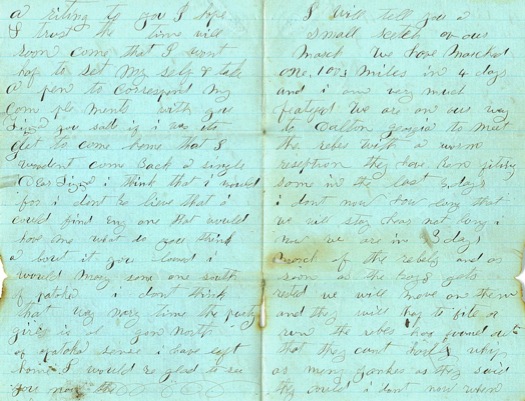 a riting to you I hope
I trust the time will
soon come that I wont
hav to set my self & take
a pen to correspond my
Com ple ments with you
you said if i was
glet to come home that I
wouldent come back a single
i think that i would
for i dont be lieve that i
could find eny one that would
have me what do you think
a bout it you
would mary some one south
of i dont think
that way mary time the
girls is all gon north
of sense i have left
home I would be glad to see
you now
I will tell you a
small scetch of our
March we have Marched
one. 100 & 3 miles in 4 days
and i am very much
we are on our way
to Dalton georgia to meet
the rebes with a warm
reseption they have ben fiting
some in the last 3 days
i dont now how long that
we will stay hear not long i
we are in 3 days
march of the rebels and as
soon as the boys gets
rested we will move on them
and they will hav to fite or
run the rebes has found out
that they cant whip
as meny yankes as they said
they could i dont now when